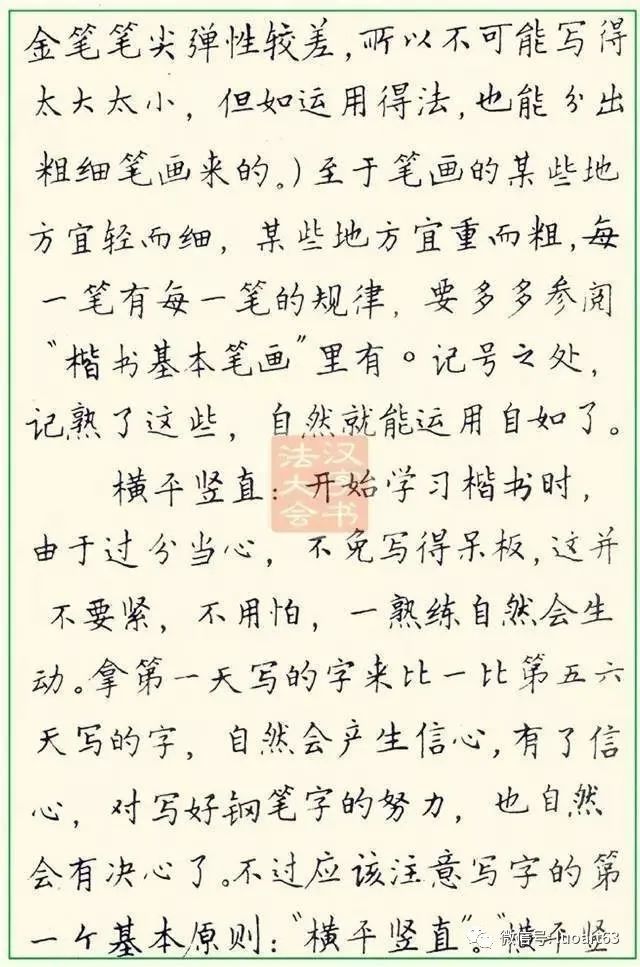 金笔笔尖弹性较差,所以不可能写得
太大太小，但如运用得法,也能分出
粗细笔画来的。)至于笔画的某些地
方宜轻而细，某些地方宜重而粗,每
一笔有每一笔的规律，要多多参阅
“楷书基本笔画”里有。记号之处，
记熟了这些，自然就能运用自如了。
汉字书法大会
横平竖直：开始学习楷书时，
由于过分当心，不免写得呆板,这并
不要紧，不用怕，一熟练自然会生
动。拿第一天写的字来比一比第五六
天写的字，自然会产生信心,有了信
心，对写好钢笔字的努力，也自然
会有决心了。不过应该注意写字的第
一个基本原则：“横平竖直”。“横平竖
微信号: luoart63